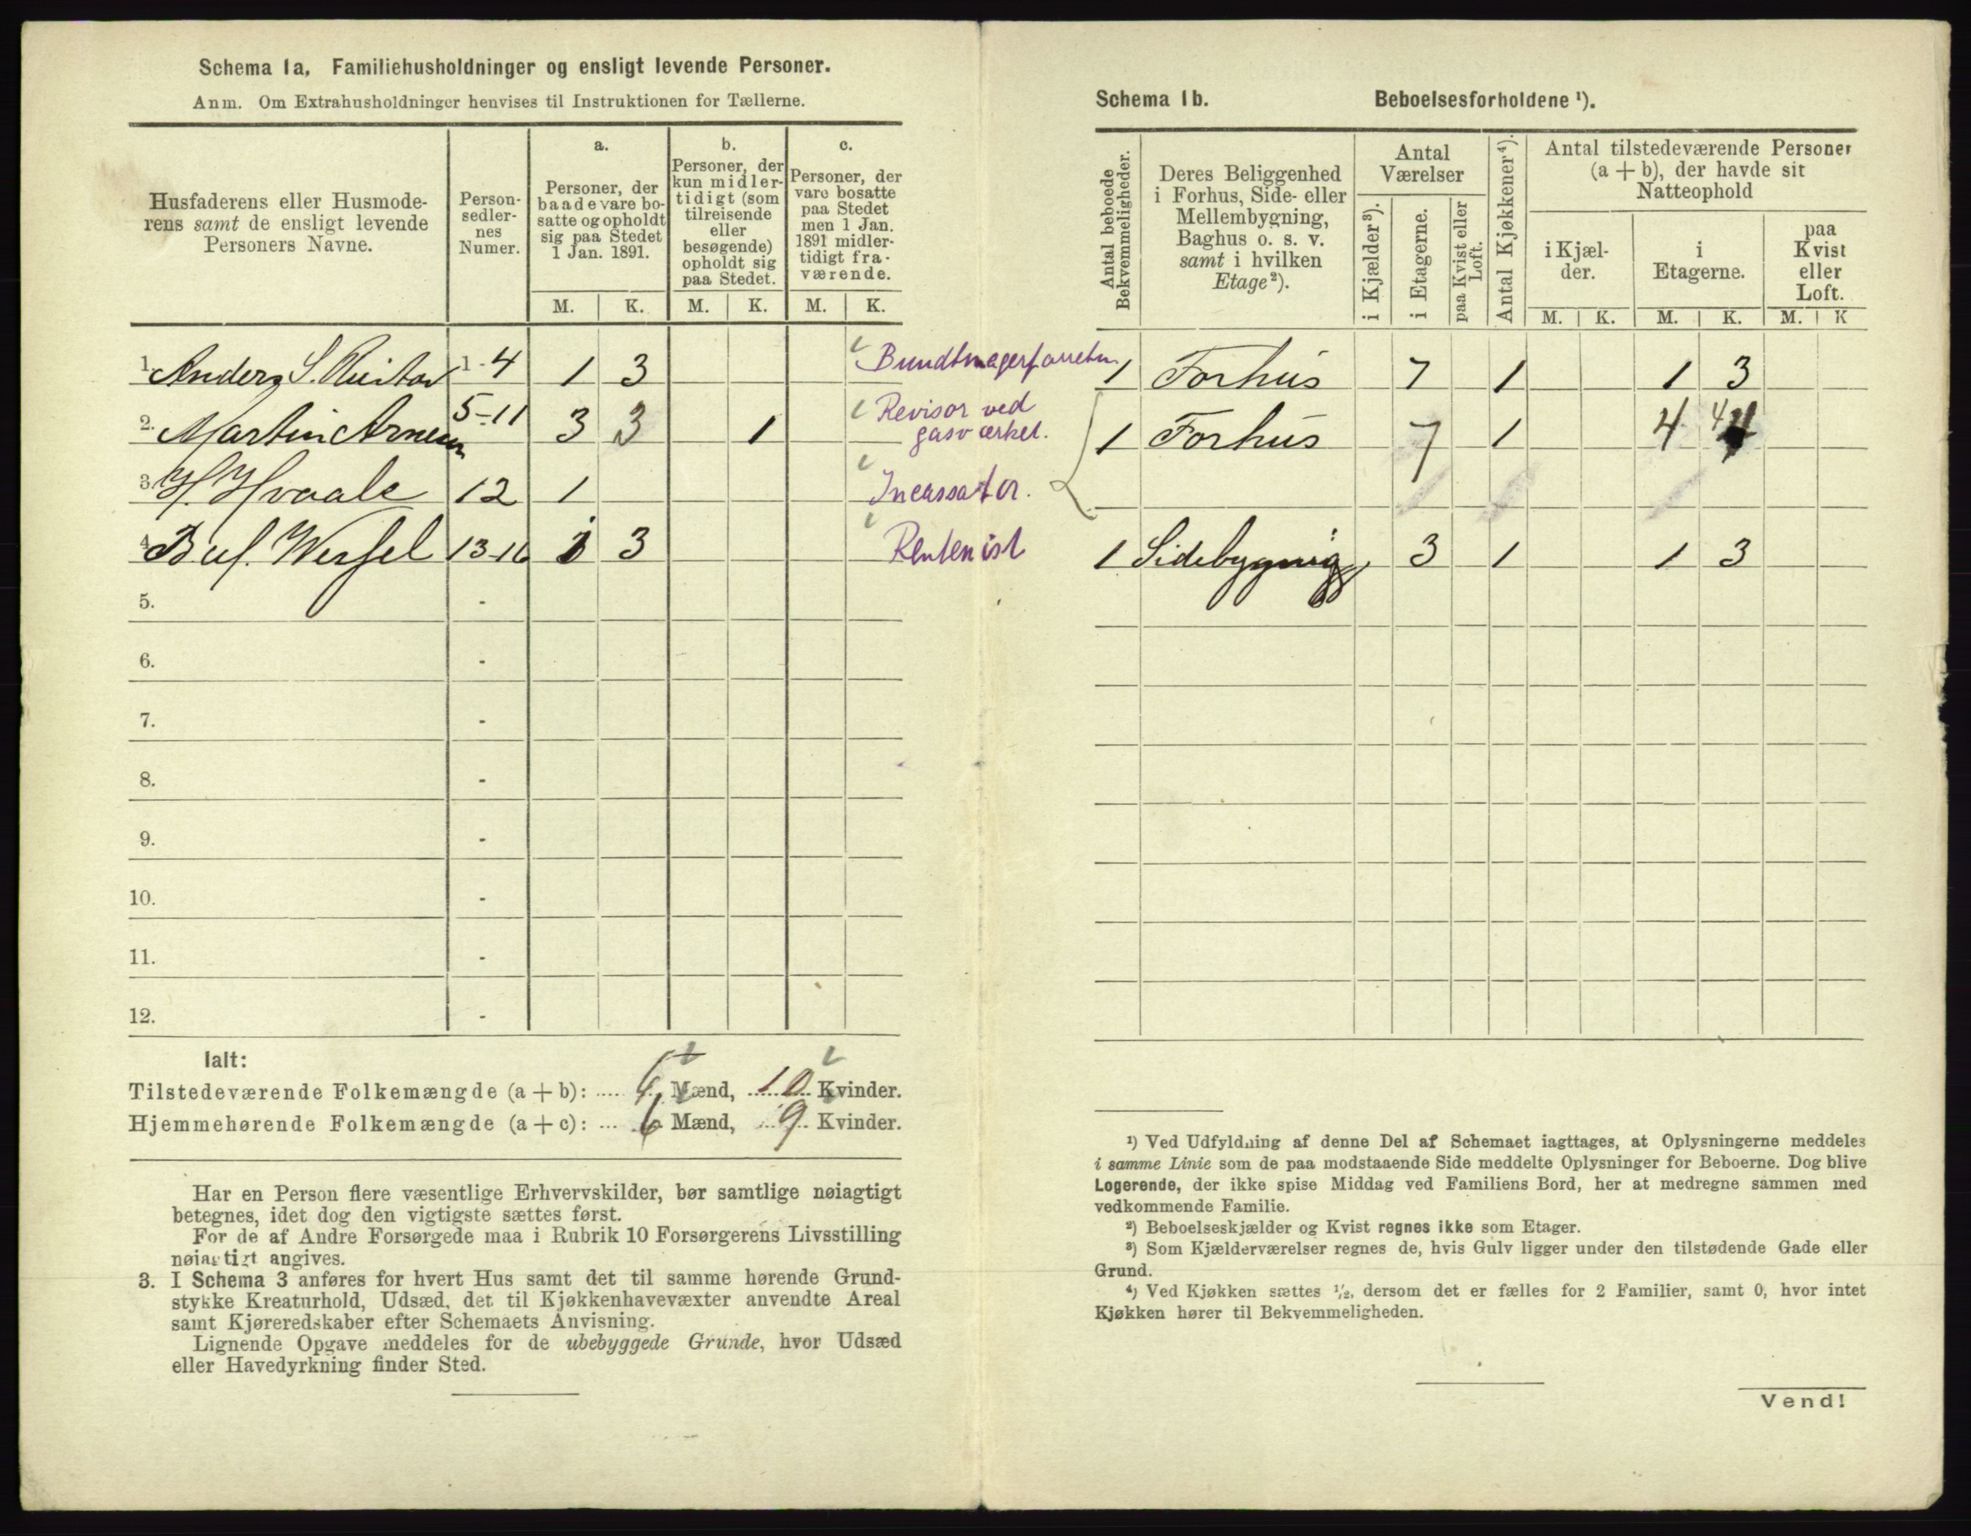 Schema 1a, Familiehusholdninger og ensligt levende Personer.
Anm. Om Extrahusholdninger henvises til Instruktionen for Tællerne.
Husfaderens eller Husmode-
rens samt de ensligt levende
Personers Navne.
Person-
sedler-
nes
Numer.
a.
Personer, der
baade vare bo-
satte og opholdt
sig paa Stedet
1 Jan. 1891.
b.
Personer, der
kun midler-
tidigt (som
tilreisende
eller
besøgende)
opholdt sig
paa Stedet.
c.
Personer, der
vare bosatte
paa Stedet
men 1 Jan.
1891 midler-
tidigt fra-
værende.
M. K. M. K. M. K.
1. Anders S. 1-4 1 3 Bundtmagerforretn
2. Martin Arnesen 5-11 3 3 1 Revisor ved
gasværket.
3. H. Hvaale 12 1 Incassator.
4. Wessel 13-16 1 3 Rentenist
5. -
6. -
7. -
8. -
9. -
10. -
11. -
12. -
Ialt:
Tilstedeværende Folkemængde (a+b): .... 6 Mænd, 10 Kvinder.
Hjemmehørende Folkemængde (a+c): ... 6 Mænd, 9 Kvinder.
Har en Person flere væsentlige Erhvervskilder, bør samtlige nøiagtigt
betegnes, idet dog den vigtigste sættes først.
For de af Andre Forsørgede maa i Rubrik 10 Forsørgerens Livsstilling
nøiagtigt angives.
3. I Schema 3 anføres for hvert Hus samt det til samme hørende Grund-
stykke Kreaturhold, Udsæd, det til Kjøkkenhavevæxter anvendte Areal
samt Kjøreredskaber efter Schemaets Anvisning.
Lignende Opgave meddeles for de ubebyggede Grunde, hvor Udsæd
eller Havedyrkning finder Sted.
Schema 1b. Beboelsesforholdene ¹).
Antal beboede
Bekvemmeligheder.
Deres Beliggenhed
i Forhus, Side- eller
Mellembygning,
Baghus o. s. v.
samt i hvilken
Etage ²).
Antal
Værelser
i Kjælder ³).
i Etagerne.
paa Kvist eller
Loft.
Antal Kjøkkener ⁴).
Antal tilstedeværende Personer
(a + b), der havde sit
Natteophold
i Kjæl-
der.
i
Etagerne.
paa
Kvist
eller
Loft.
M. K. M. K. M. K
1 Forhus 7 1 1 3
1 Forhus 7 1 4 4
1 Sidebygnig 3 1 1 3
¹) Ved Udfyldning af denne Del af Schemaet iagttages, at Oplysningerne meddeles
i samme Linie som de paa modstaaende Side meddelte Oplysninger for Beboerne. Dog blive
Logerende, der ikke spise Middag ved Familiens Bord, her at medregne sammen med
vedkommende Familie.
²) Beboelseskjælder og Kvist regnes ikke som Etager.
³) Som Kjælderværelser regnes de, hvis Gulv ligger under den tilstødende Gade eller
Grund.
⁴) Ved Kjøkken sættes ½, dersom det er fælles for 2 Familier, samt 0, hvor intet
Kjøkken hører til Bekvemmeligheden.
Vend!